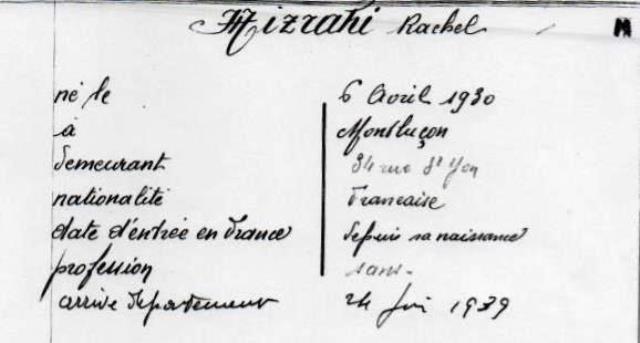 Mizrahi Rachel M
né le 6 Avril 1930
à Montluçon
demeurant 34 rue St Yon
nationalité Francaise
date d'éntrée en France depuis sa naissance
profession sans -
arrivé département 24 1939